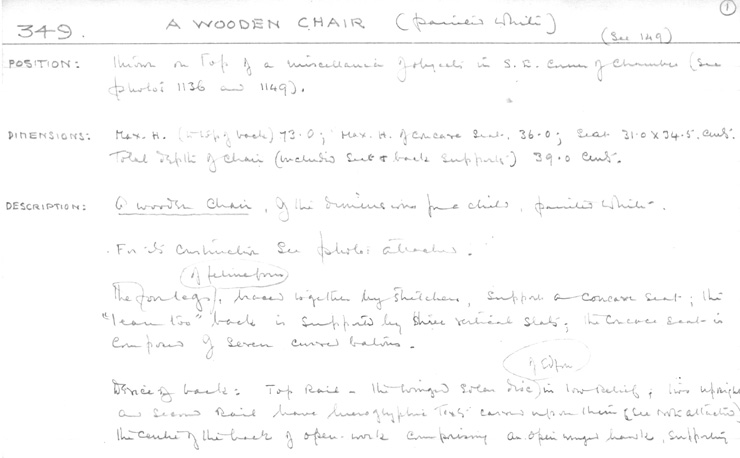 ①
349.
A WOODEN CHAIR (painted white)
(See 149)
POSITION: Thrown on top of a miscellanea of objects in S.E. corner of Chamber (See
photos 1136 and 1149).
DIMENSIONS: Max. H. (to top of back) 73.0; Max. H. of concave seat, 36.0; Seat 31.0 x 34.5. cms.
Total depth of chair (includes seat & back supports) 39.0 cms.
DESCRIPTION: A wooden chair, of the dimensions for a child, painted white.
For its construction see photos attached.
of feline form
The four legs, braced together by stretchers, support a concave seat; the
"lean too" back is supported by three vertical slats; the concave seat is
composed of seven curved batons.
of Edfu
Device of back: Top Rail - the winged solar disc in low relief; two upright
and second rail have hieroglyphic texts carved upon them (see notes attached)
the centre of the back of open-work comprising an open winged hawk, supporting